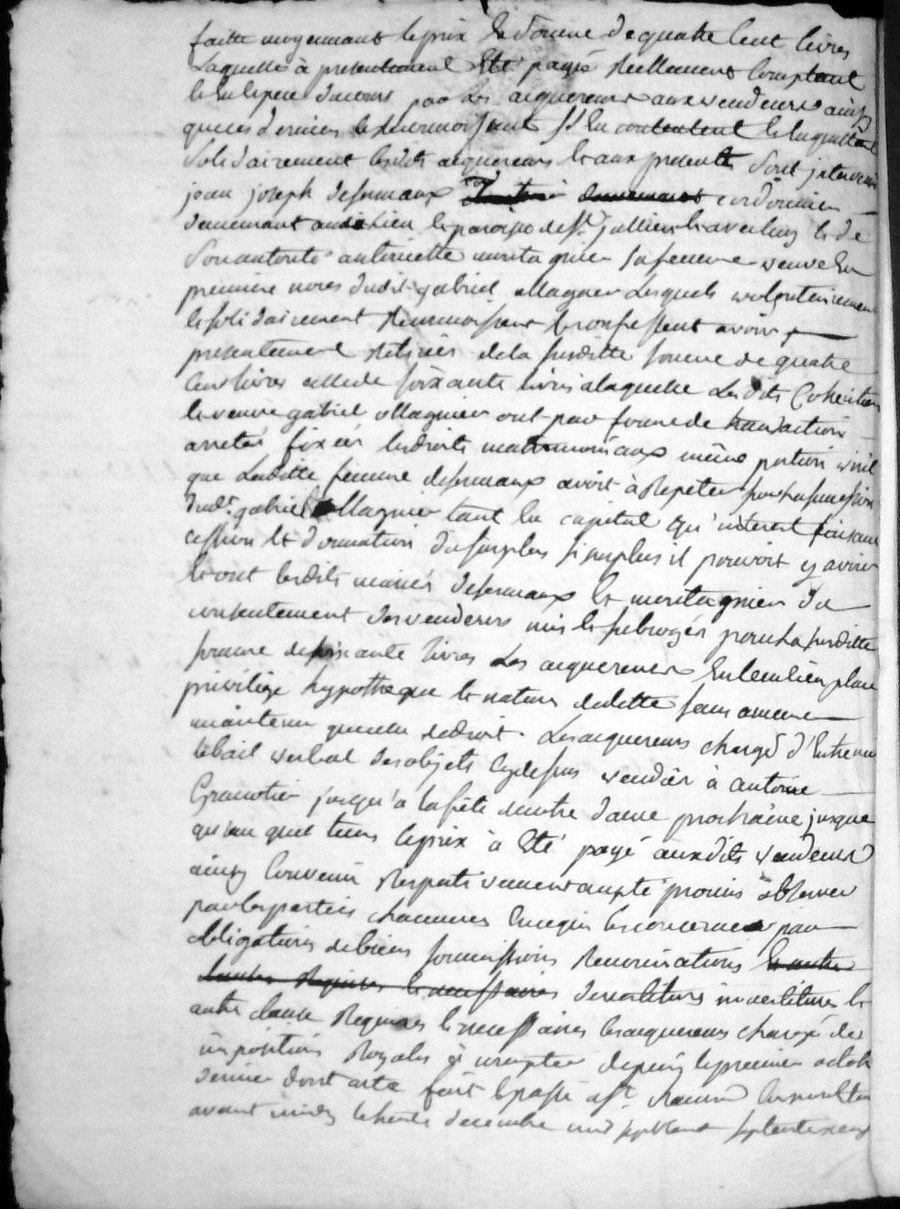 faitte moyennant le prix et somme de quatre cent livres
laquelle à presentement Eté payée Réellement Comptant
et en espece d'acours par les acquereurs aux vendeurs ainsy
que ces derniers le reconnoissent s'en contentent et en quittent
solidairement lesdits acquereurs et aux presentes sont intervenus
jean joseph desormaux cordonier
demeurant audit lieu et paroisse de St julien et de
son autorité antoinette montagnier sa femme veuve en
premiere noces dudit gabriel Magnier lesquels volontairement
et solidairement Reconnoissent et confessent avoir
presentement Retirés de la susditte somme de quatre
cent livres celle de soixante livres a laquelle lesdits Cohéritiers
et veuve gabriel Magnier ont par forme de transaction
arretés fixés les droits matrimoniaux même portion virile
que laditte femme desormaux avoit à Repeter sur la succession
dudt gabriel Magnier tant en capital qu'interet faisant
cession et donnation du surplus si surplus il pouvoit y avoir
et ont lesdits mariés desormaux et montagnier du
consentement des vendeurs mis et subrogés pour la susditte
somme de soixante livres les acquereurs en leur lieu place
privilège hypotheque et nature de dette sans aucune
maintenue que de droit. Les acquereurs chargé d'Entretenir
le bail verbal des objets cy dessus vendus à antoine
jusqu'a la fête de notre dame prochaine jusque
auquel tems le prix à Eté payé auxdits vendeurs
ainsy Convenu Respectivement accepté promis observer
par les parties chacunes En ce qui les concerne par
obligations de biens soumissions Renonciations et autre
clauses Requises et necessaires devestiture investiture et
autre clause Requises et necessaires les acquereurs chargé des
impositions Royales à compter depuis le premier octobre
dernier dont acte fait et passé a St chamond
avant midy le trente decembre mil sept cent septante